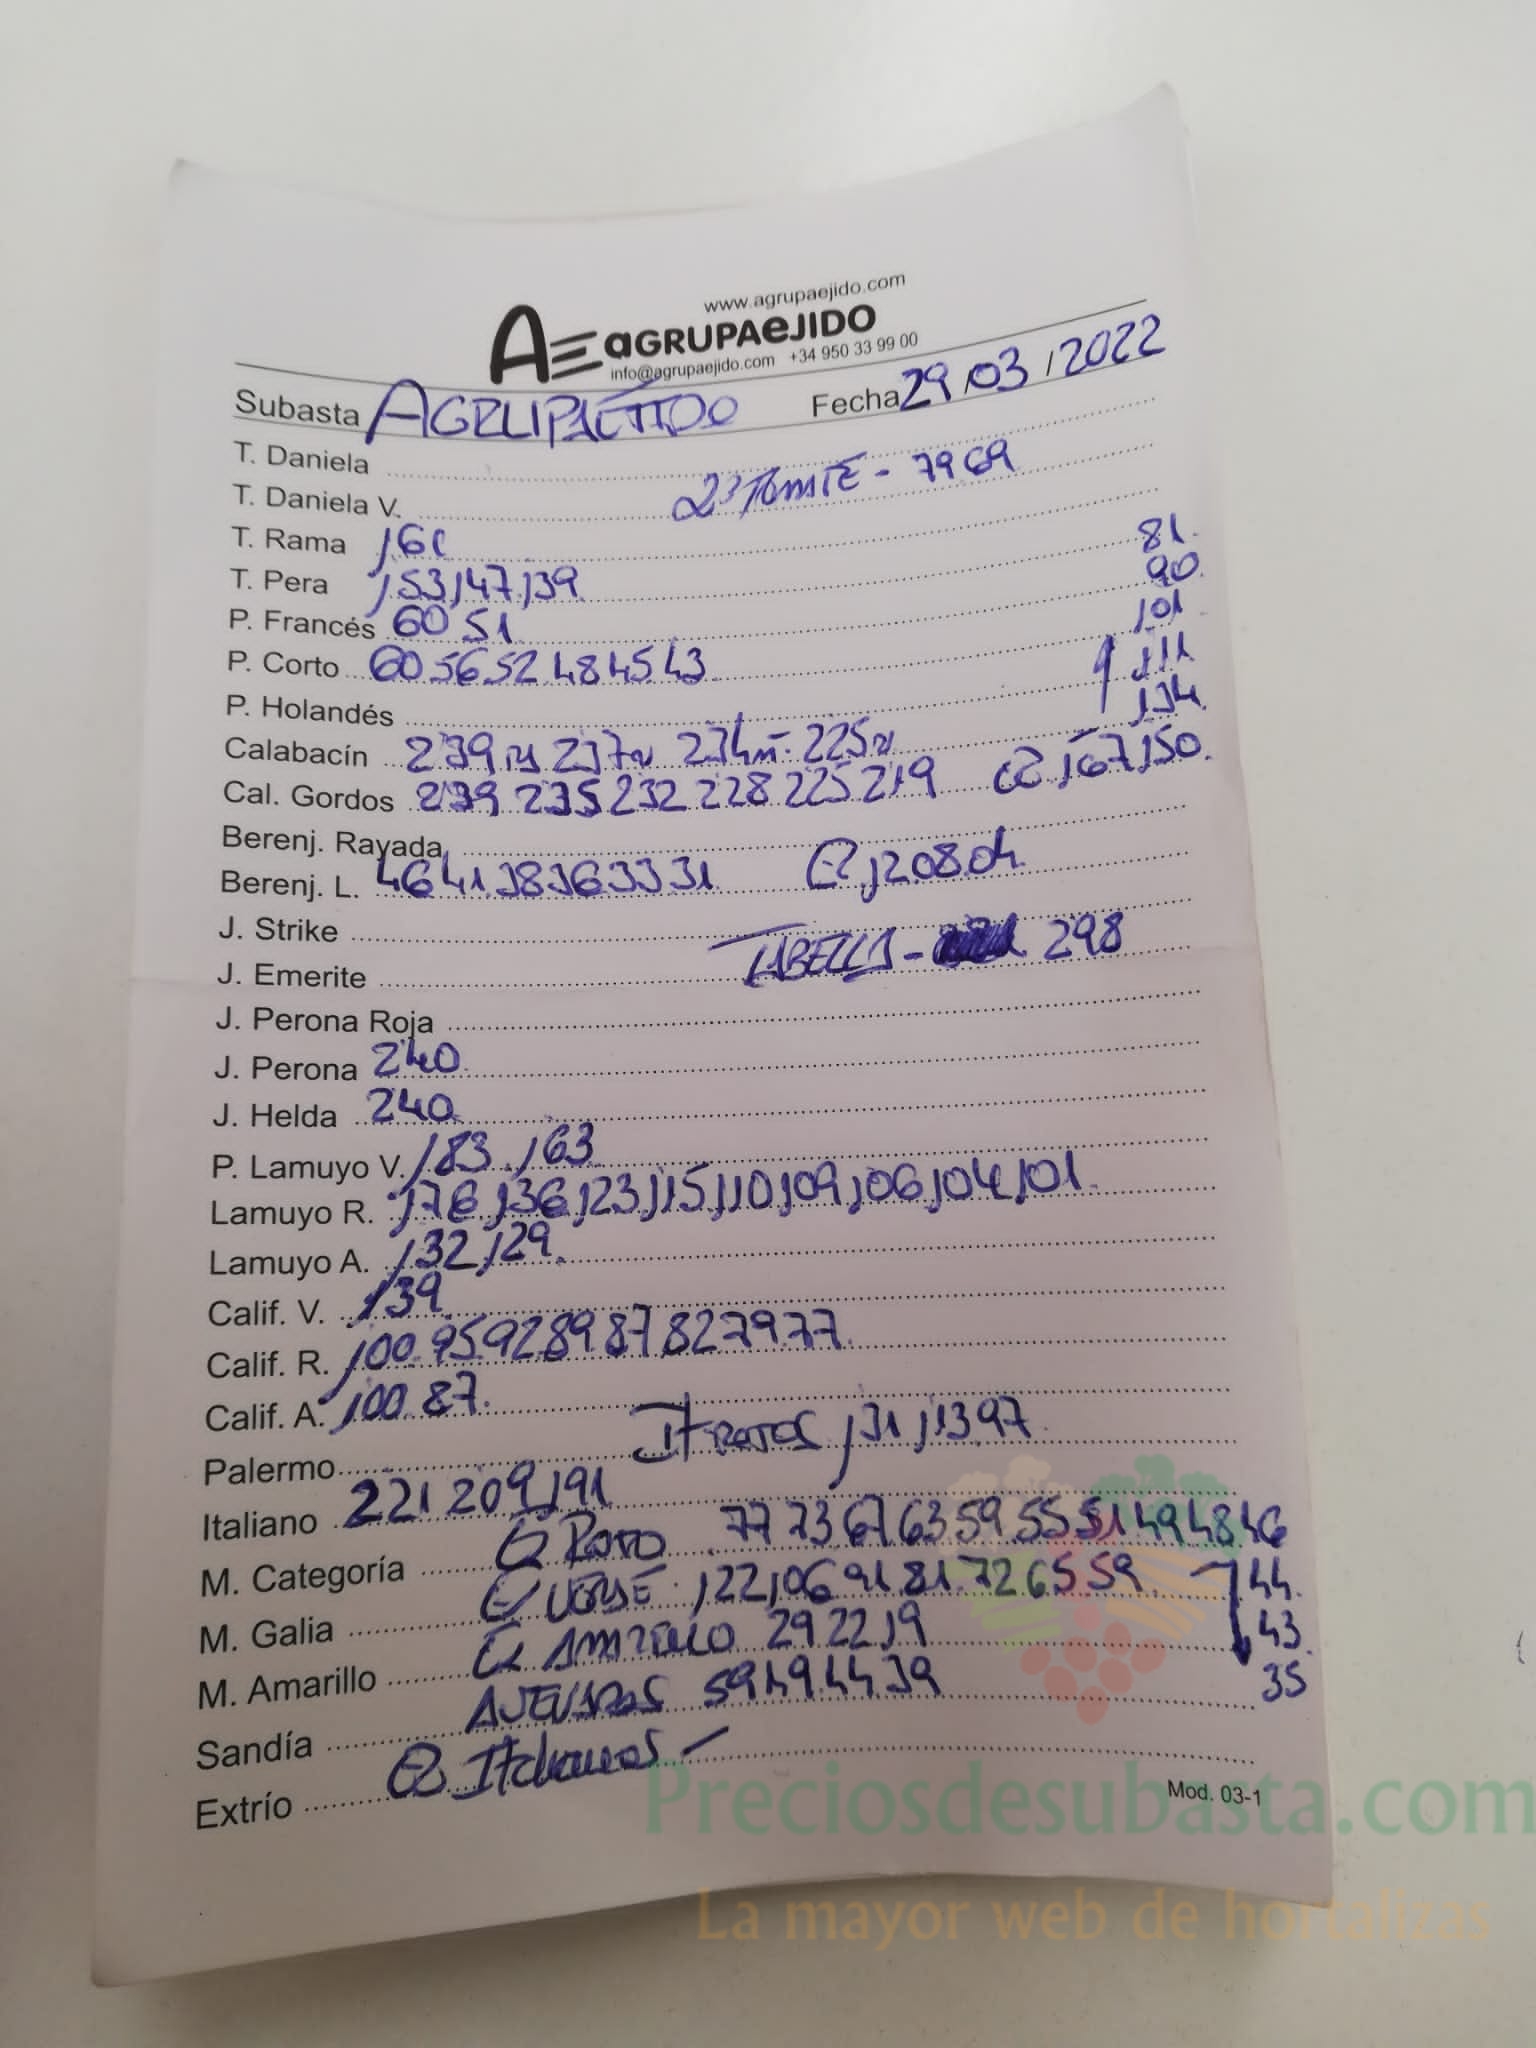 www.agrupaejido.com
AE aGRUPAeJIDO
info@agrupaejido.com +34 950 33 99 00
Subasta AGRUPAEJIDO Fecha 29/03/2022
T. Daniela
2ª TOMATE - 79 69
T. Daniela V.
T. Rama 161
81
T. Pera 153 147 139
90
P. Francés 60 51
101
P. Corto 60 56 52 48 45 43
111
P. Holandés
134
Calabacín 239 237 234 225
Cal. Gordos 239 235 232 228 225 219 167 150
Berenj. Rayada
Berenj. L. 46 41 38 36 33 31 120 80 4
J. Strike
TABELLA - 298
J. Emerite
J. Perona Roja
J. Perona 240
J. Helda 240
P. Lamuyo V. 183 163
Lamuyo R. 176 136 123 115 110 109 106 104 101
Lamuyo A. 132 129
Calif. V. 139
Calif. R. 100 95 92 89 87 82 79 77
Calif. A. 100 87
Palermo It ROJOS 131 113 97
Italiano 221 209 191
ROJO 77 73 67 63 59 55 51 49 48 46
M. Categoría
VERDE 122 106 91 81 72 65 59 44
M. Galia
AMARILLO 29 22 19 43
M. Amarillo
ASEURADOS 59 49 44 39 35
Sandía
Italianos -
Extrío
Mod. 03-1
Preciosdesubasta.com
La mayor web de hortalizas